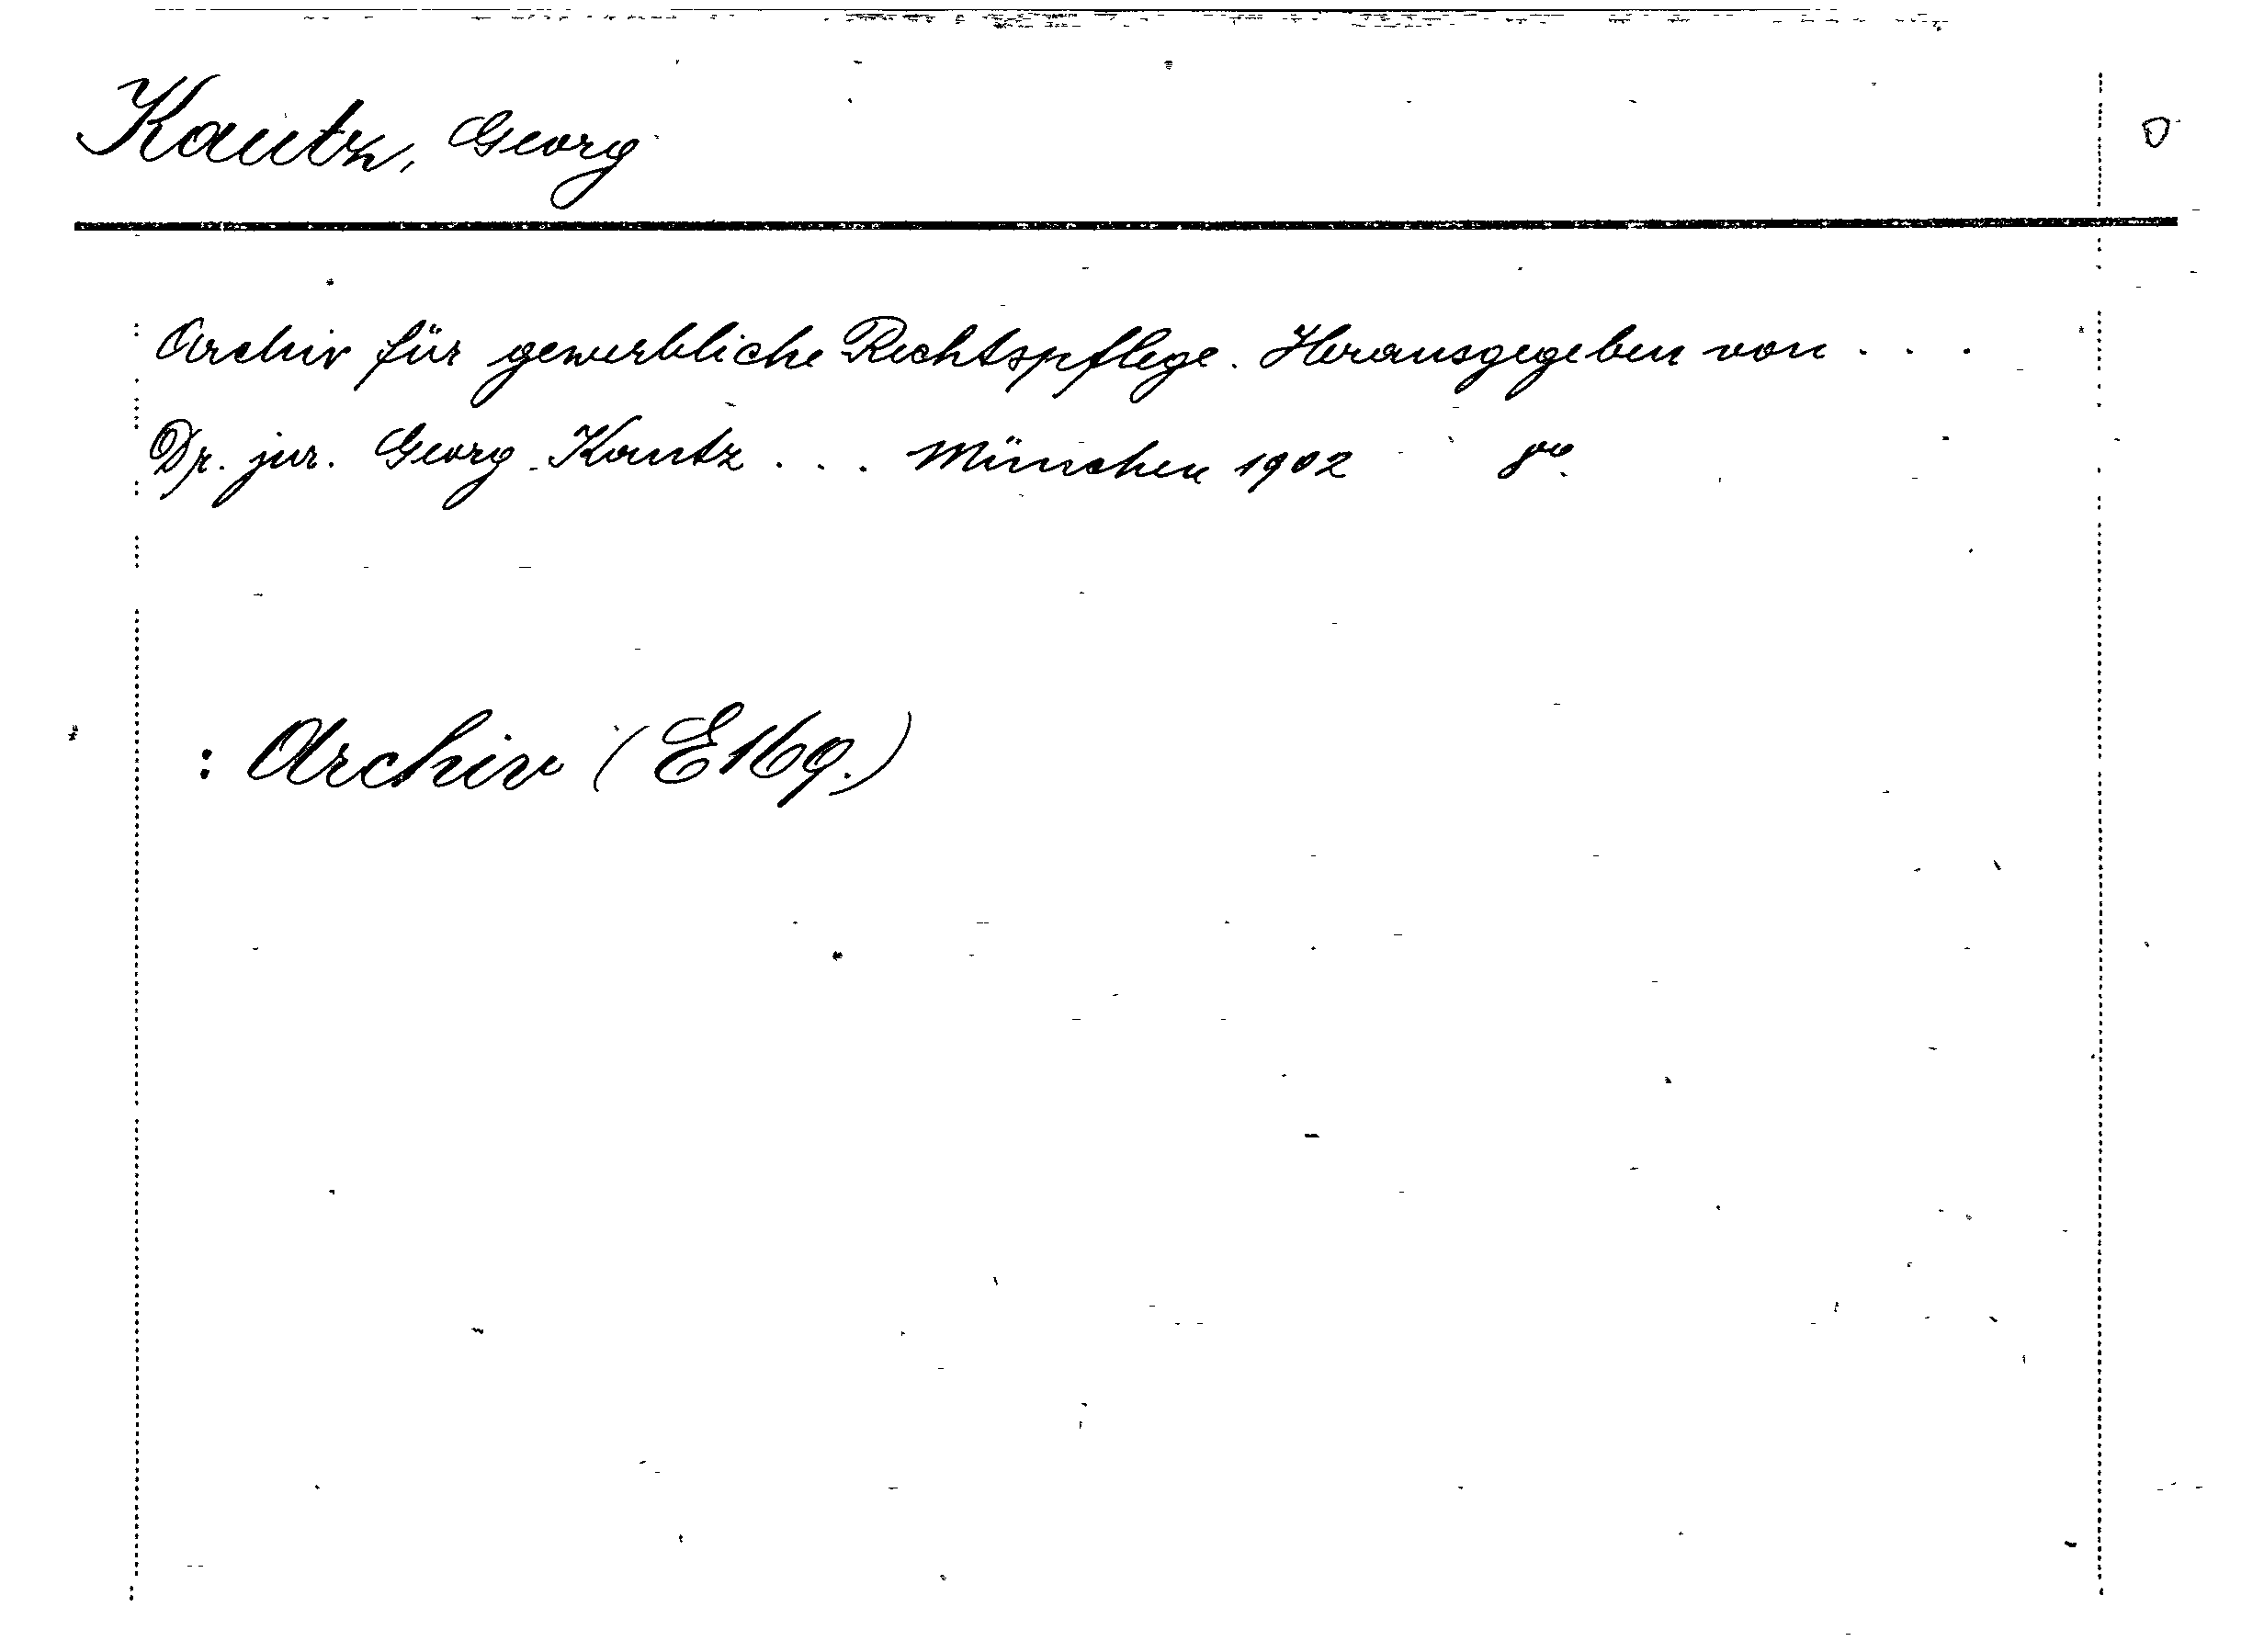 Kautz, Georg
Archiv für gewerbliche Rechtspflege. Herausgegeben von . . .
Dr. jur. Georg Kautz . . . München 1902 8vo.
: Archiv (E169.)